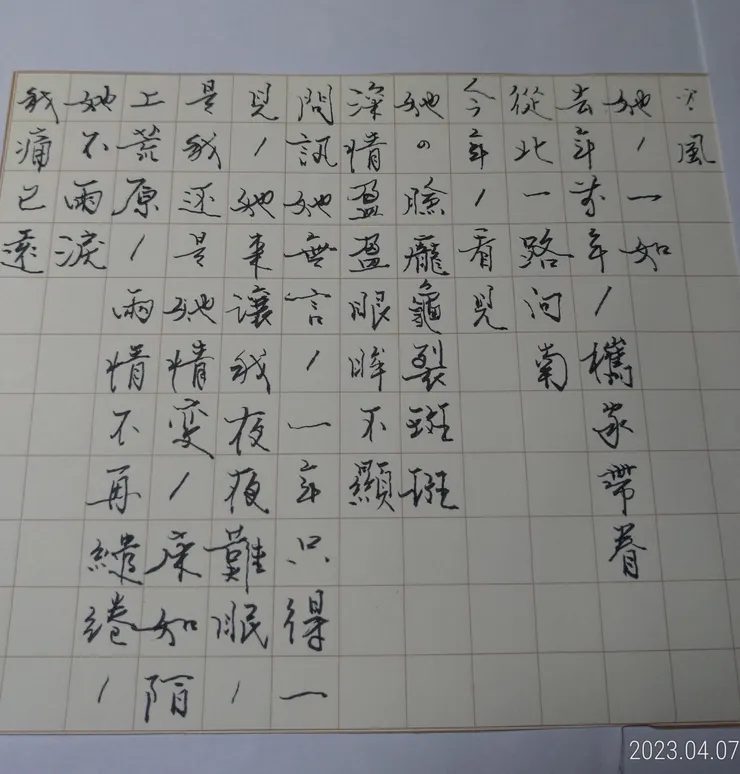 風
她/一如
去年前年/攜家帶眷
從北一路向南
今年/看見
她の臉龐龜裂斑斑
深情盈盈眼眸不顯
問訊她無言/一年只得一
見/她來讓我夜夜難眠/
是我还是她情变/床如陌
上荒原/兩情不再繾綣/
她不雨淚
我痛已遠
2023.04.07